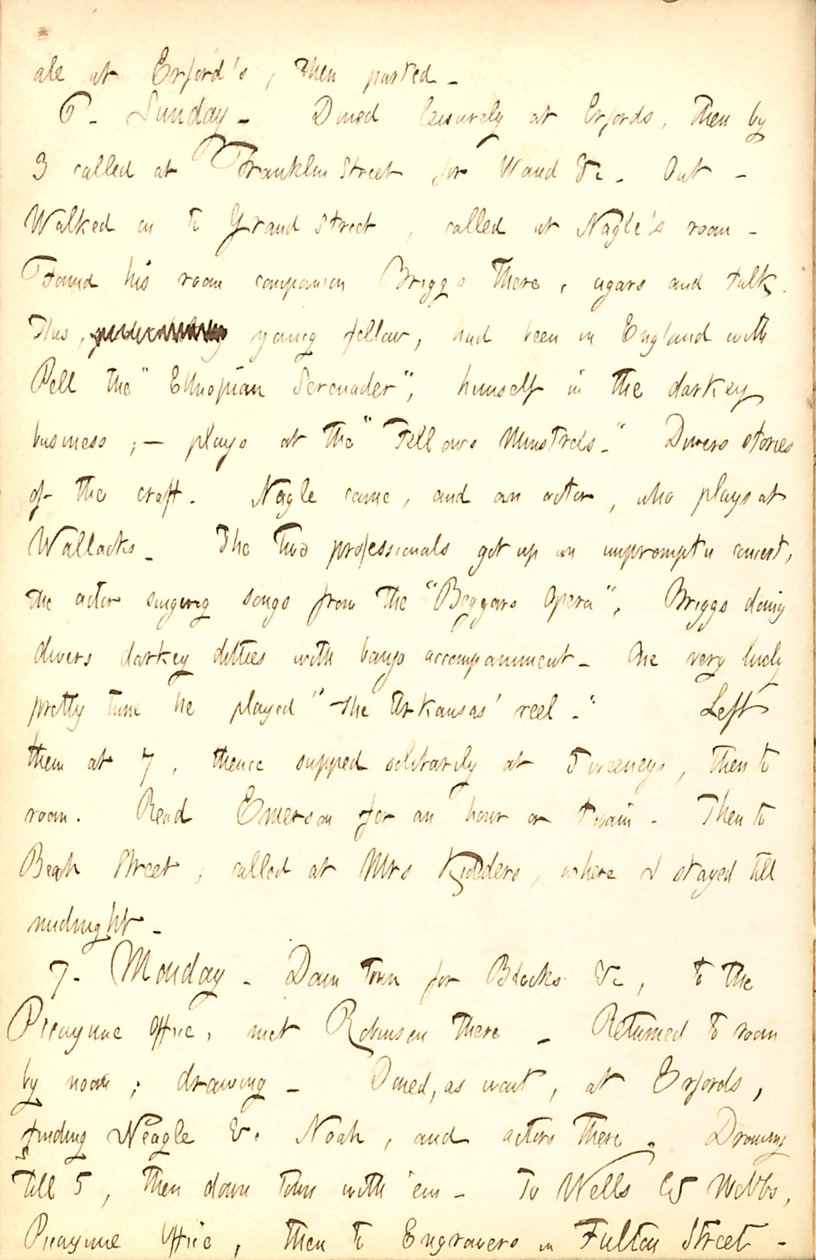 ale at Erford's, then parted_
6_ Sunday_ Dined leisurely at Erfords, then by
3 called at Franklin Street for Waud &c_ Out_
Walked on to Grand Street, called at Nagle's room_
Found his room companion Briggs there, cigars and talk.
This, young fellow, had been in England with
Pell the "Ethiopian Serenader", himself in the darkey
business;_ plays at the "Fellows Minstrels_" Divers stories
of the craft. Nagle came, and an actor, who plays at
Wallacks_ The two professionals got up an impromptu concert,
the actor singing songs from the "Beggars Opera", Briggs doing
divers darkey ditties with banjo accompaniment_ One very lively
pretty tune he played "the Arkansas' reel_" Left
them at 7, thence supped solitarily at Sweeneys, then to
room. Read Emerson for an hour or twain_ Then to
Beach Street, called at Mrs Kidders, where I stayed till
midnight_
7_ Monday_ Down town for Blocks &c, to the
Picayune Office, met Robinson there_ Returned to room
by noon; drawing_ Dined, as wont, at Erfords,
finding Neagle & Noah, and actors there. Drawing
till 5, then down town with 'em_ To Wells & Webbs,
Picayune Office, then to Engravers in Fulton Street_